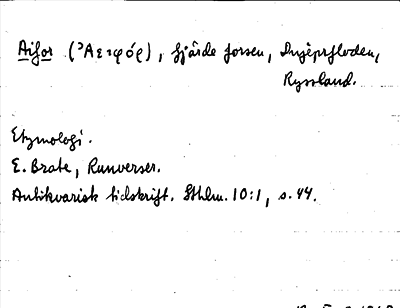 Aifor (Ἀειφόρ), fjärde forsen, Dnjeprfloden,
Ryssland.
Etymologi.
E. Brate, Runverser.
Antikvarisk tidskrift. Sthlm. 10:1, s. 44.